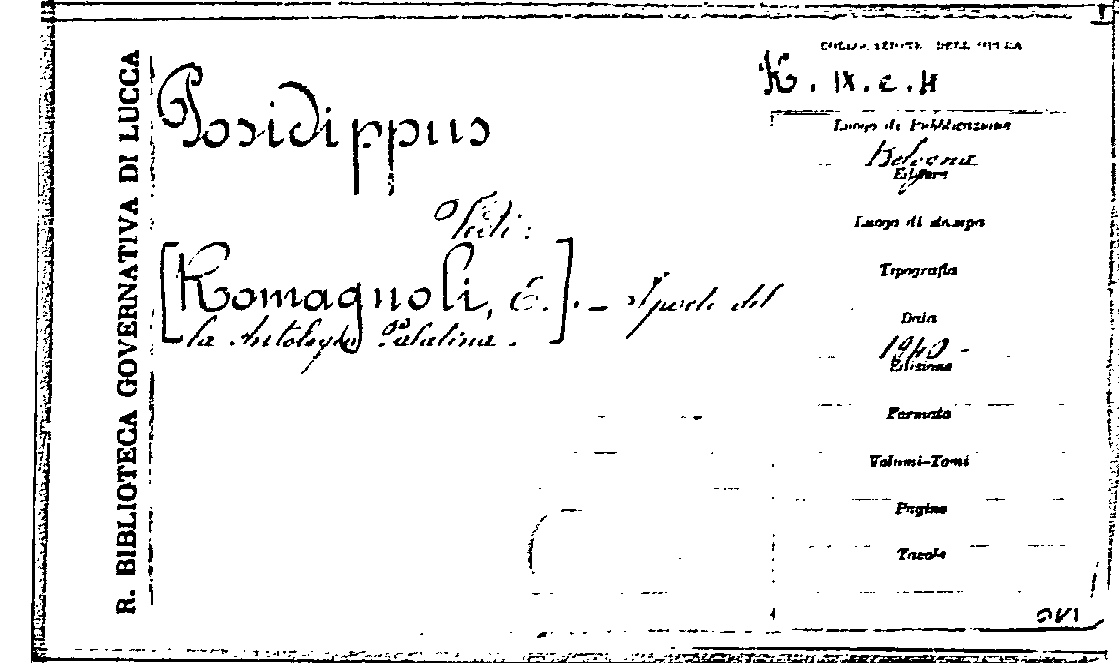 R. BIBLIOTECA GOVERNATIVA DI LUCCA
Posidippus
Vedi:
[Romagnoli, E.]. - I poeti del
la Antologia Palatina.
COLLOCAZIONE DELL'OPERA
K. IX. c. 4
Luogo di Pubblicazione
Bologna
Editore
Luogo di stampa
Tipografia
Data
1940 -
Edizione
Formato
Volumi-Tomi
Pagine
Tavole